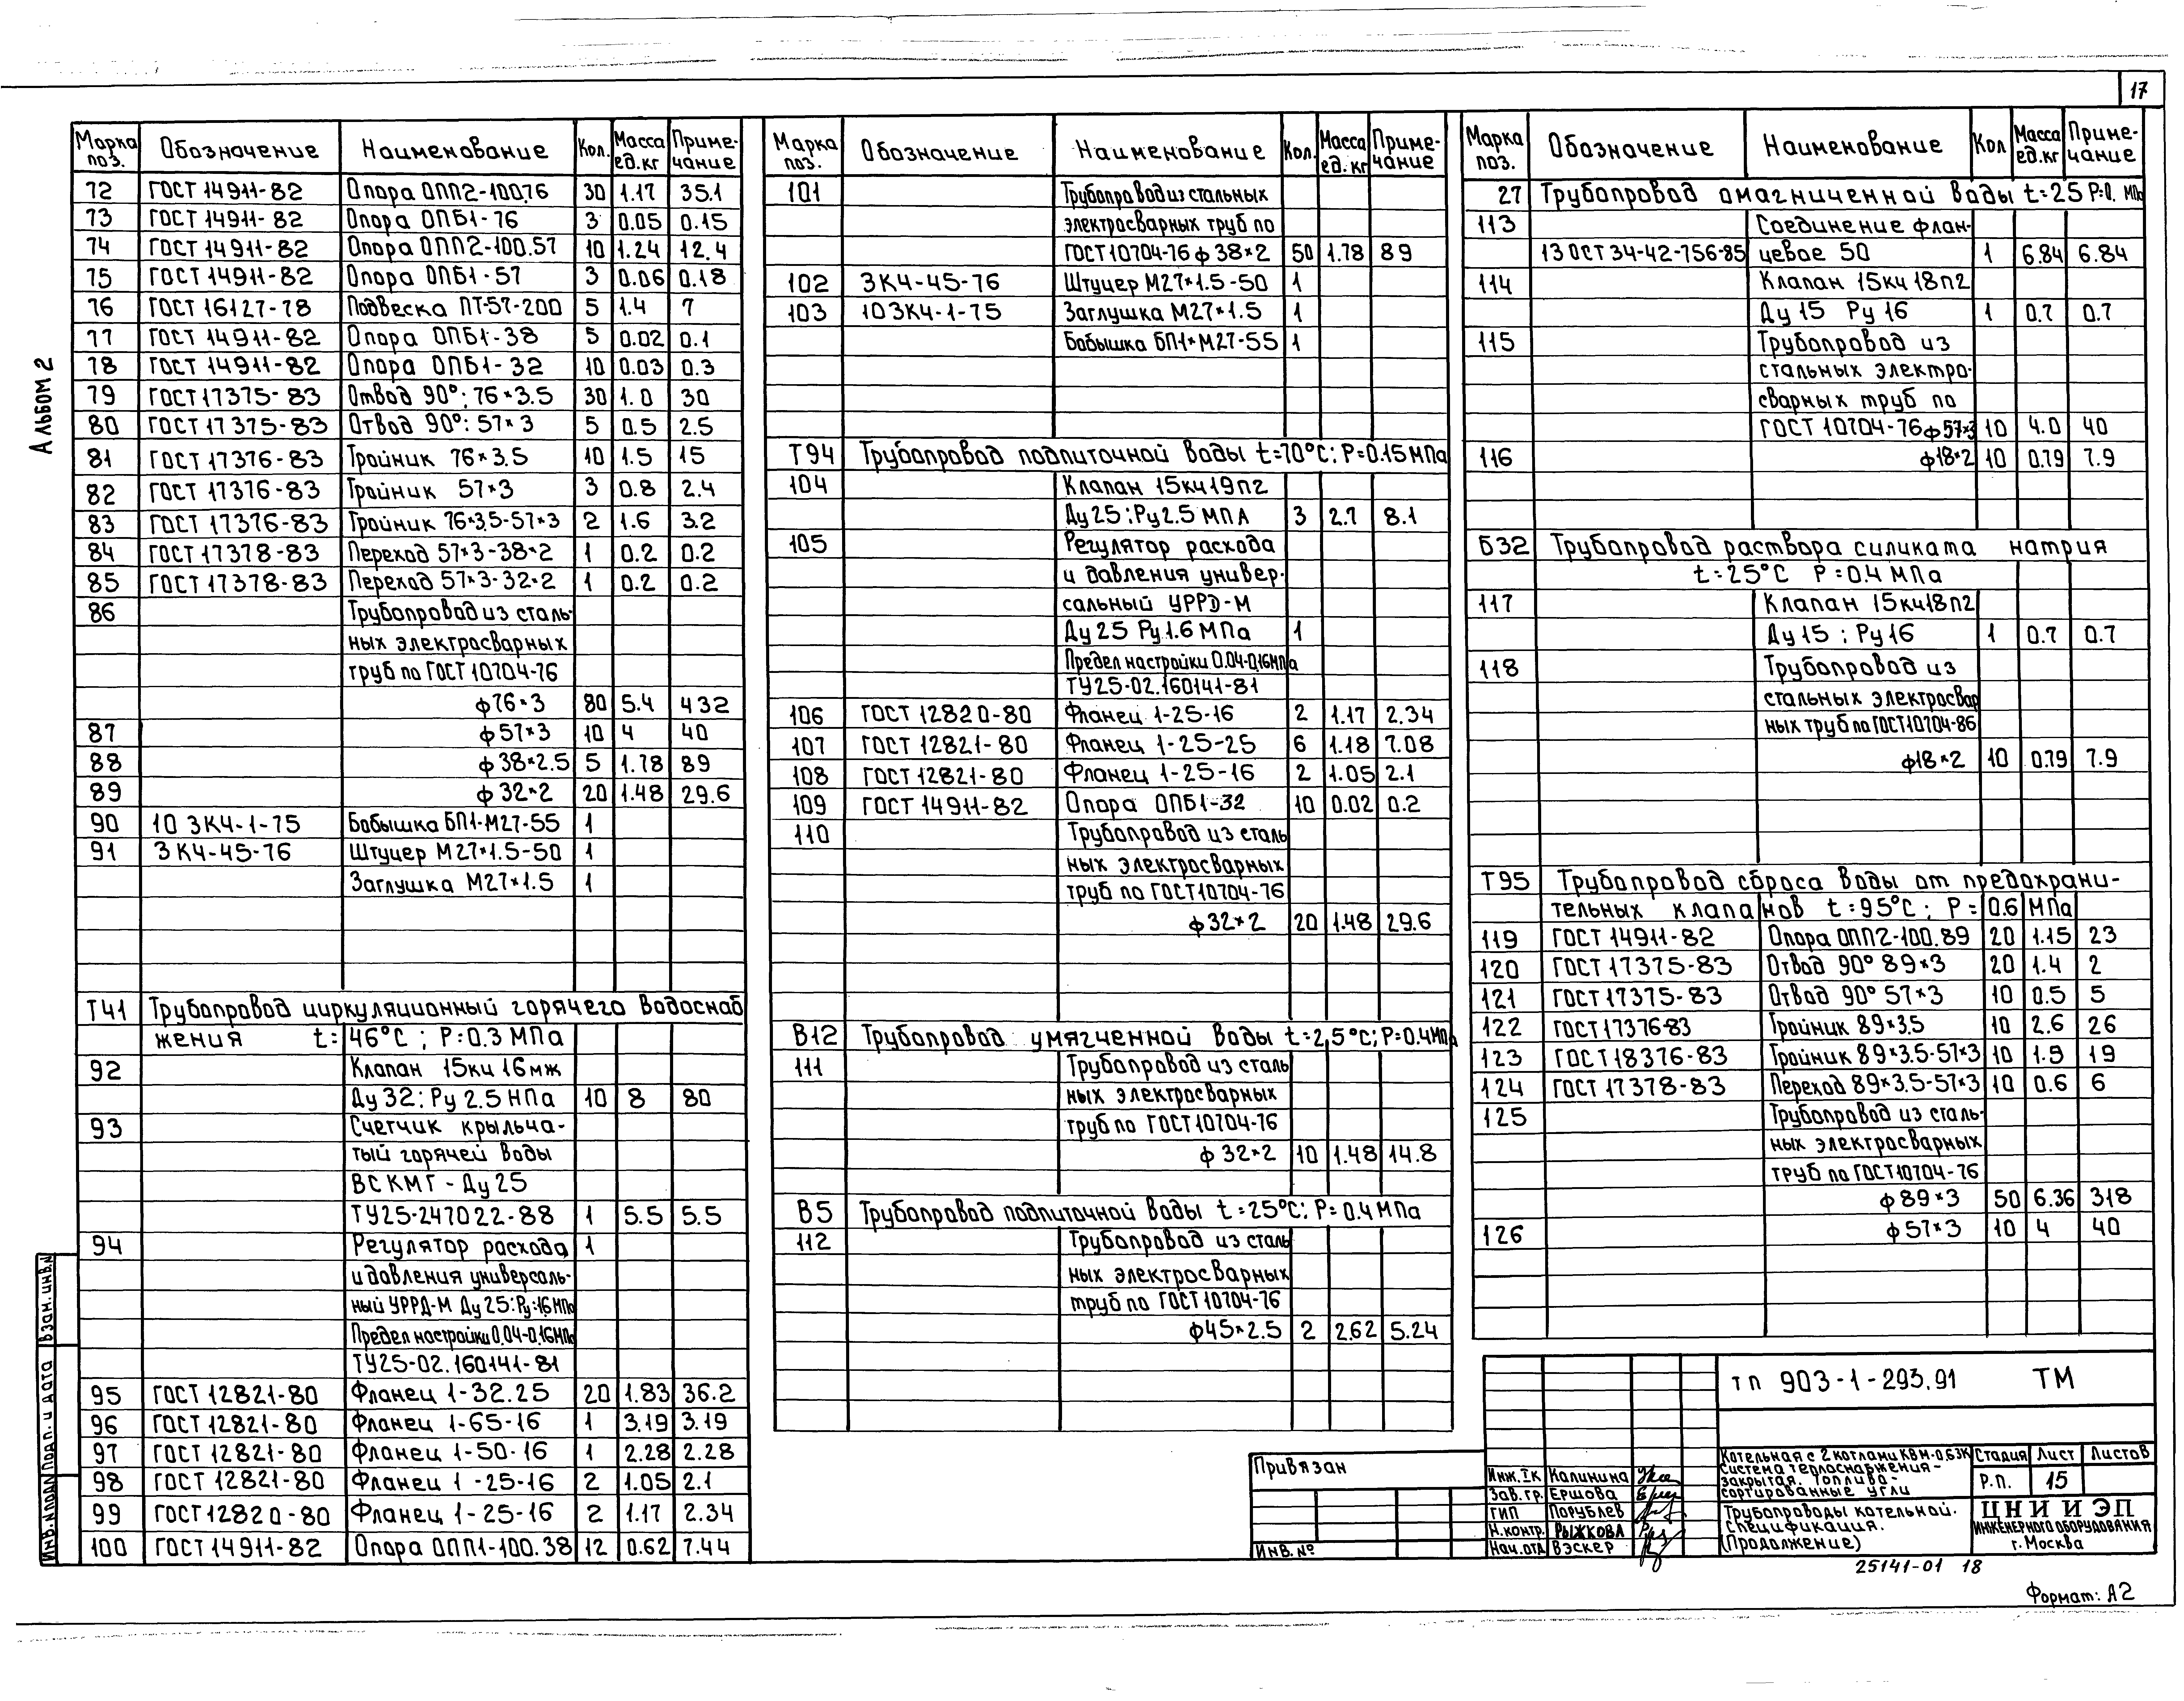 17
Альбом 2
Марка поз. Обозначение Наименование Кол. Масса ед.кг Приме-чание
72 ГОСТ 14911-82 Опора ОПП2-100.76 30 1.17 35.1
73 ГОСТ 14911-82 Опора ОПБ1-76 3 0.05 0.15
74 ГОСТ 14911-82 Опора ОПП2-100.57 10 1.24 12.4
75 ГОСТ 14911-82 Опора ОПБ1-57 3 0.06 0.18
76 ГОСТ 16127-78 Подвеска ПТ-57-200 5 1.4 7
77 ГОСТ 14911-82 Опора ОПБ1-38 5 0.02 0.1
78 ГОСТ 14911-82 Опора ОПБ1-32 10 0.03 0.3
79 ГОСТ 17375-83 Отвод 90°; 76×3.5 30 1.0 30
80 ГОСТ 17375-83 Отвод 90°: 57×3 5 0.5 2.5
81 ГОСТ 17376-83 Тройник 76×3.5 10 1.5 15
82 ГОСТ 17376-83 Тройник 57×3 3 0.8 2.4
83 ГОСТ 17376-83 Тройник 76×3.5-57×3 2 1.6 3.2
84 ГОСТ 17378-83 Переход 57×3-38×2 1 0.2 0.2
85 ГОСТ 17378-83 Переход 57×3-32×2 1 0.2 0.2
86 Трубопровод из сталь-
ных электросварных
труб по ГОСТ 10704-76
ф76×3 80 5.4 432
87 ф57×3 10 4 40
88 ф38×2.5 5 1.78 89
89 ф32×2 20 1.48 29.6
90 10 ЗК4-1-75 Бобышка БП1-М27-55 1
91 ЗК4-45-76 Штуцер М27×1.5-50 1
Заглушка М27×1.5 1
Т41 Трубопровод циркуляционный горячего водоснаб
жения t=46°С; Р=0.3 МПа
92 Клапан 15кч 16мж
Ду 32: Ру 2.5 НПа 10 8 80
93 Счетчик крыльча-
тый горячей воды
ВСКМГ-Ду 25
ТУ25-247022-88 1 5.5 5.5
94 Регулятор расхода 1
и давления универсаль-
ный УРРД-М Ду 25: Ру:16 МПа
Предел настройки 0.04-0.16МПа
ТУ25-02.160141-81
95 ГОСТ 12821-80 Фланец 1-32.25 20 1.83 36.2
96 ГОСТ 12821-80 Фланец 1-65-16 1 3.19 3.19
97 ГОСТ 12821-80 Фланец 1-50-16 1 2.28 2.28
98 ГОСТ 12821-80 Фланец 1-25-16 2 1.05 2.1
99 ГОСТ 12820-80 Фланец 1-25-16 2 1.17 2.34
100 ГОСТ 14911-82 Опора ОПП1-100.38 12 0.62 7.44
Марка поз. Обозначение Наименование Кол. Масса ед.кг Приме-чание
101 Трубопровод из стальных
электросварных труб по
ГОСТ 10704-76 ф 38×2 50 1.78 89
102 ЗК4-45-76 Штуцер М27×1.5-50 1
103 10ЗК4-1-75 Заглушка М27×1.5 1
Бобышка БП1×М27-55 1
Т94 Трубопровод подпиточной воды t=70°С; Р=0.15МПа
104 Клапан 15кч19п2
Ду 25; Ру 2.5 МПА 3 2.7 8.1
105 Регулятор расхода
и давления универ-
сальный УРРД-М
Ду 25 Ру 1.6 МПа 1
Предел настройки 0.04-0.16МПа
ТУ25-02.160141-81
106 ГОСТ 12820-80 Фланец 1-25-16 2 1.17 2.34
107 ГОСТ 12821-80 Фланец 1-25-25 6 1.18 7.08
108 ГОСТ 12821-80 Фланец 1-25-16 2 1.05 2.1
109 ГОСТ 14911-82 Опора ОПБ1-32 10 0.02 0.2
110 Трубопровод из сталь
ных электросварных
труб по ГОСТ10704-76
ф32×2 20 1.48 29.6
В12 Трубопровод умягченной воды t=2,5°С; Р=0.4МПа
111 Трубопровод из сталь
ных электросварных
труб по ГОСТ 10704-76
ф 32×2 10 1.48 14.8
В5 Трубопровод подпиточной воды t=25°С; Р=0.4 МПа
112 Трубопровод из сталь
ных электросварных
труб по ГОСТ 10704-76
ф45×2.5 2 2.62 5.24
Марка поз. Обозначение Наименование Кол Масса ед.кг Приме-чание
27 Трубопровод омагниченной воды t=25 Р=0. МПа
113 Соединение флан-
13 ОСТ 34-42-756-85 цевое 50 1 6.84 6.84
114 Клапан 15кч 18п2
Ду 15 Ру 16 1 0.7 0.7
115 Трубопровод из
стальных электро-
сварных труб по
ГОСТ 10704-76 ф57×3 10 4.0 40
116 ф18×2 10 0.79 7.9
Б32 Трубопровод раствора силиката натрия
t=25°С Р=0.4 МПа
117 Клапан 15кч18п2
Ду 15; Ру 16 1 0.7 0.7
118 Трубопровод из
стальных электросвар
ных труб по ГОСТ10704-86
ф18×2 10 0.79 7.9
Т95 Трубопровод сброса воды от предохрани-
тельных клапанов t=95°С; Р=0.6 МПа
119 ГОСТ 14911-82 Опора ОПП2-100.89 20 1.15 23
120 ГОСТ 17375-83 Отвод 90° 89×3 20 1.4 2
121 ГОСТ 17375-83 Отвод 90° 57×3 10 0.5 5
122 ГОСТ17376-83 Тройник 89×3.5 10 2.6 26
123 ГОСТ 18376-83 Тройник 89×3.5-57×3 10 1.9 19
124 ГОСТ 17378-83 Переход 89×3.5-57×3 10 0.6 6
125 Трубопровод из сталь-
ных электросварных
труб по ГОСТ10704-76
ф89×3 50 6.36 318
126 ф57×3 10 4 40
Взам. инв.№
Подп. и дата
Инв.№ подл
Привязан
Инв. №
тп 903-1-293.91 ТМ
Инж. I к Калинина
Зав. гр. Ершова
ГИП Порублев
Н.контр. Рыжкова
Нач.отд Вэскер
Котельная с 2 котлами КВм-0.63К
Система теплоснабжения-
закрытая. Топливо-
сортированные угли
Стадия Лист Листов
Р.П. 15
Трубопроводы котельной.
Спецификация.
(Продолжение)
ЦНИИЭП
ИНЖЕНЕРНОГО ОБОРУДОВАНИЯ
г. Москва
25141-01 18
Формат: А2